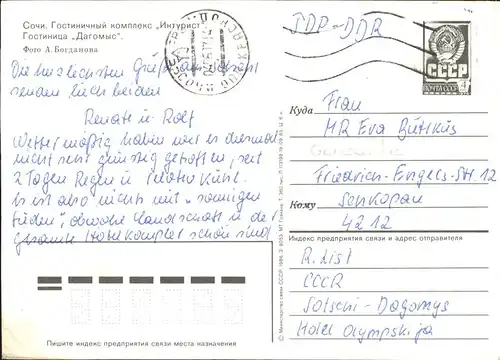 Сочи. Гостиничный комплекс „Интурист".
Гостиница „Дагомыс".
Фото А. Богданова
Die herzlichsten Grüße
senden Euch beiden
Renate u. Rolf
Wettermäßig haben wir es diesmal
nicht sehr günstig getroffen, seit
2 Tagen Regen u. kühl.
Es ist also nichts mit „sonnigen
Süden", obwohl Landschaft u. der
gesamte Hotelkomplex schön sind
Пишите индекс предприятия связи места назначения
SDP-DDR
ПОЧТА СССР
4
Куда
Frau
MR Eva Büttküs
Friedrich-Engels-Str. 12
Кому
Senkopan
4212
Индекс предприятия связи и адрес отправителя
R. List
CCCR
Sotschi-Dagomys
Hotel Olympskija